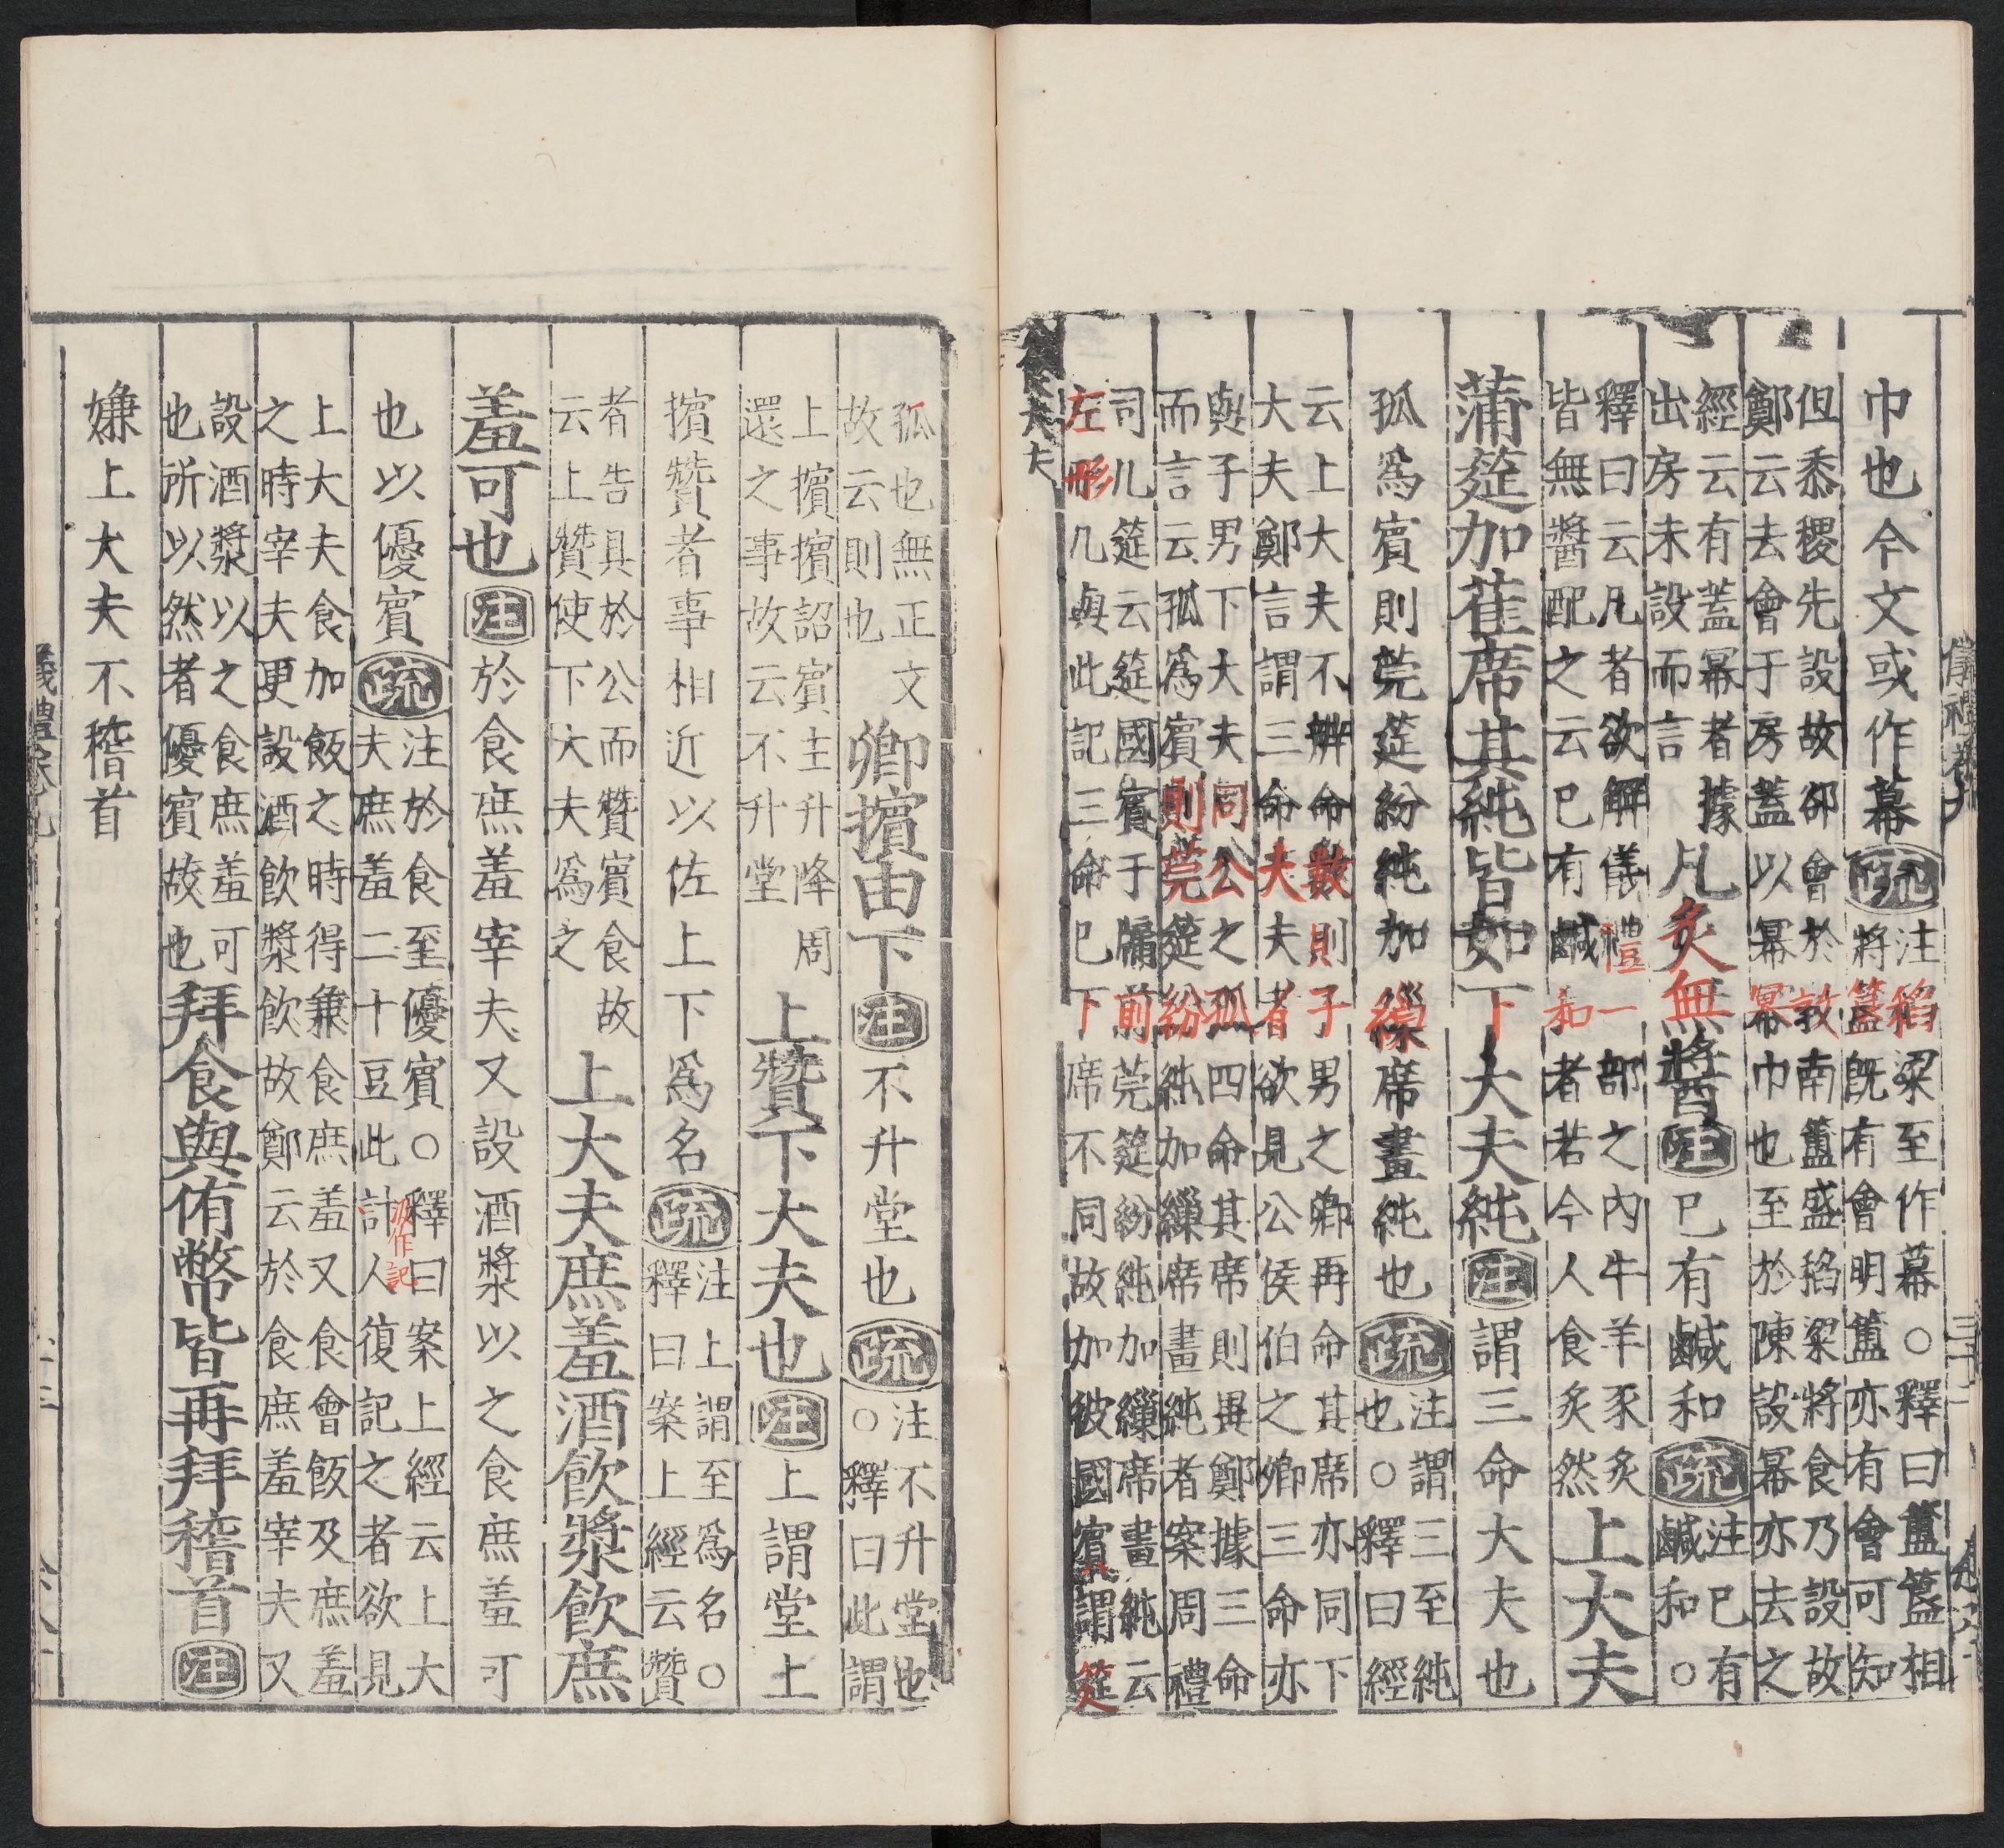 巾也今文或作幕疏注將簠既有會明簠亦有會可知
稻粱至作幕○釋曰簠簋相
但黍稷先設故卻會於敦南簠盛稻粱將食乃設故
鄭云去會于房蓋以冪冪巾也至於陳設冪亦去之
經云有蓋冪者據
出房未設而言
凡炙無醬注已有鹹和疏注已有
鹹和○
釋曰云凡者欲解儀禮一部之內牛羊豕炙
皆無醬配之云已有鹹和者若今人食炙然
上大夫
蒲筵加萑席其純皆如下大夫純注謂三命大夫也
孤爲賓則莞筵紛純加繅席畫純也疏注謂三至純
也○釋曰經
云上大夫不辨命數則子男之卿再命其席亦同下
大夫鄭言謂三命大夫者欲見公侯伯之卿三命亦
與子男下大夫同公之孤四命其席則異鄭據三命
而言云孤爲賓則莞筵紛純加繅席畫純者案周禮
司几筵云筵國賓于牖前莞筵紛純加繅席畫純云
左彤几與此記三命已下席不同故加彼國賓謂筵
孤也無正文
故云則也
卿擯由下注不升堂也疏注不升堂也
○釋曰此謂
上擯擯詔賓主升降周
還之事故云不升堂
上贊下大夫也注上謂堂上
擯贊者事相近以佐上下爲名疏注上謂至爲名○
釋曰案上經云贊
者告具於公而贊賓食故
云上贊使下大夫爲之
上大夫庶羞酒飲漿飲庶
羞可也注於食庶羞宰夫又設酒漿以之食庶羞可
也以優賓疏注於食至優賓○釋曰案上經云上大
夫庶羞二十豆此計人復記之者欲見
浚作記
上大夫食加飯之時得兼食庶羞又食會飯及庶羞
之時宰夫更設酒飲漿飲故鄭云於食庶羞宰夫又
設酒漿以之食庶羞可
也所以然者優賓故也
拜食與侑幣皆再拜稽首注
嫌上大夫不稽首